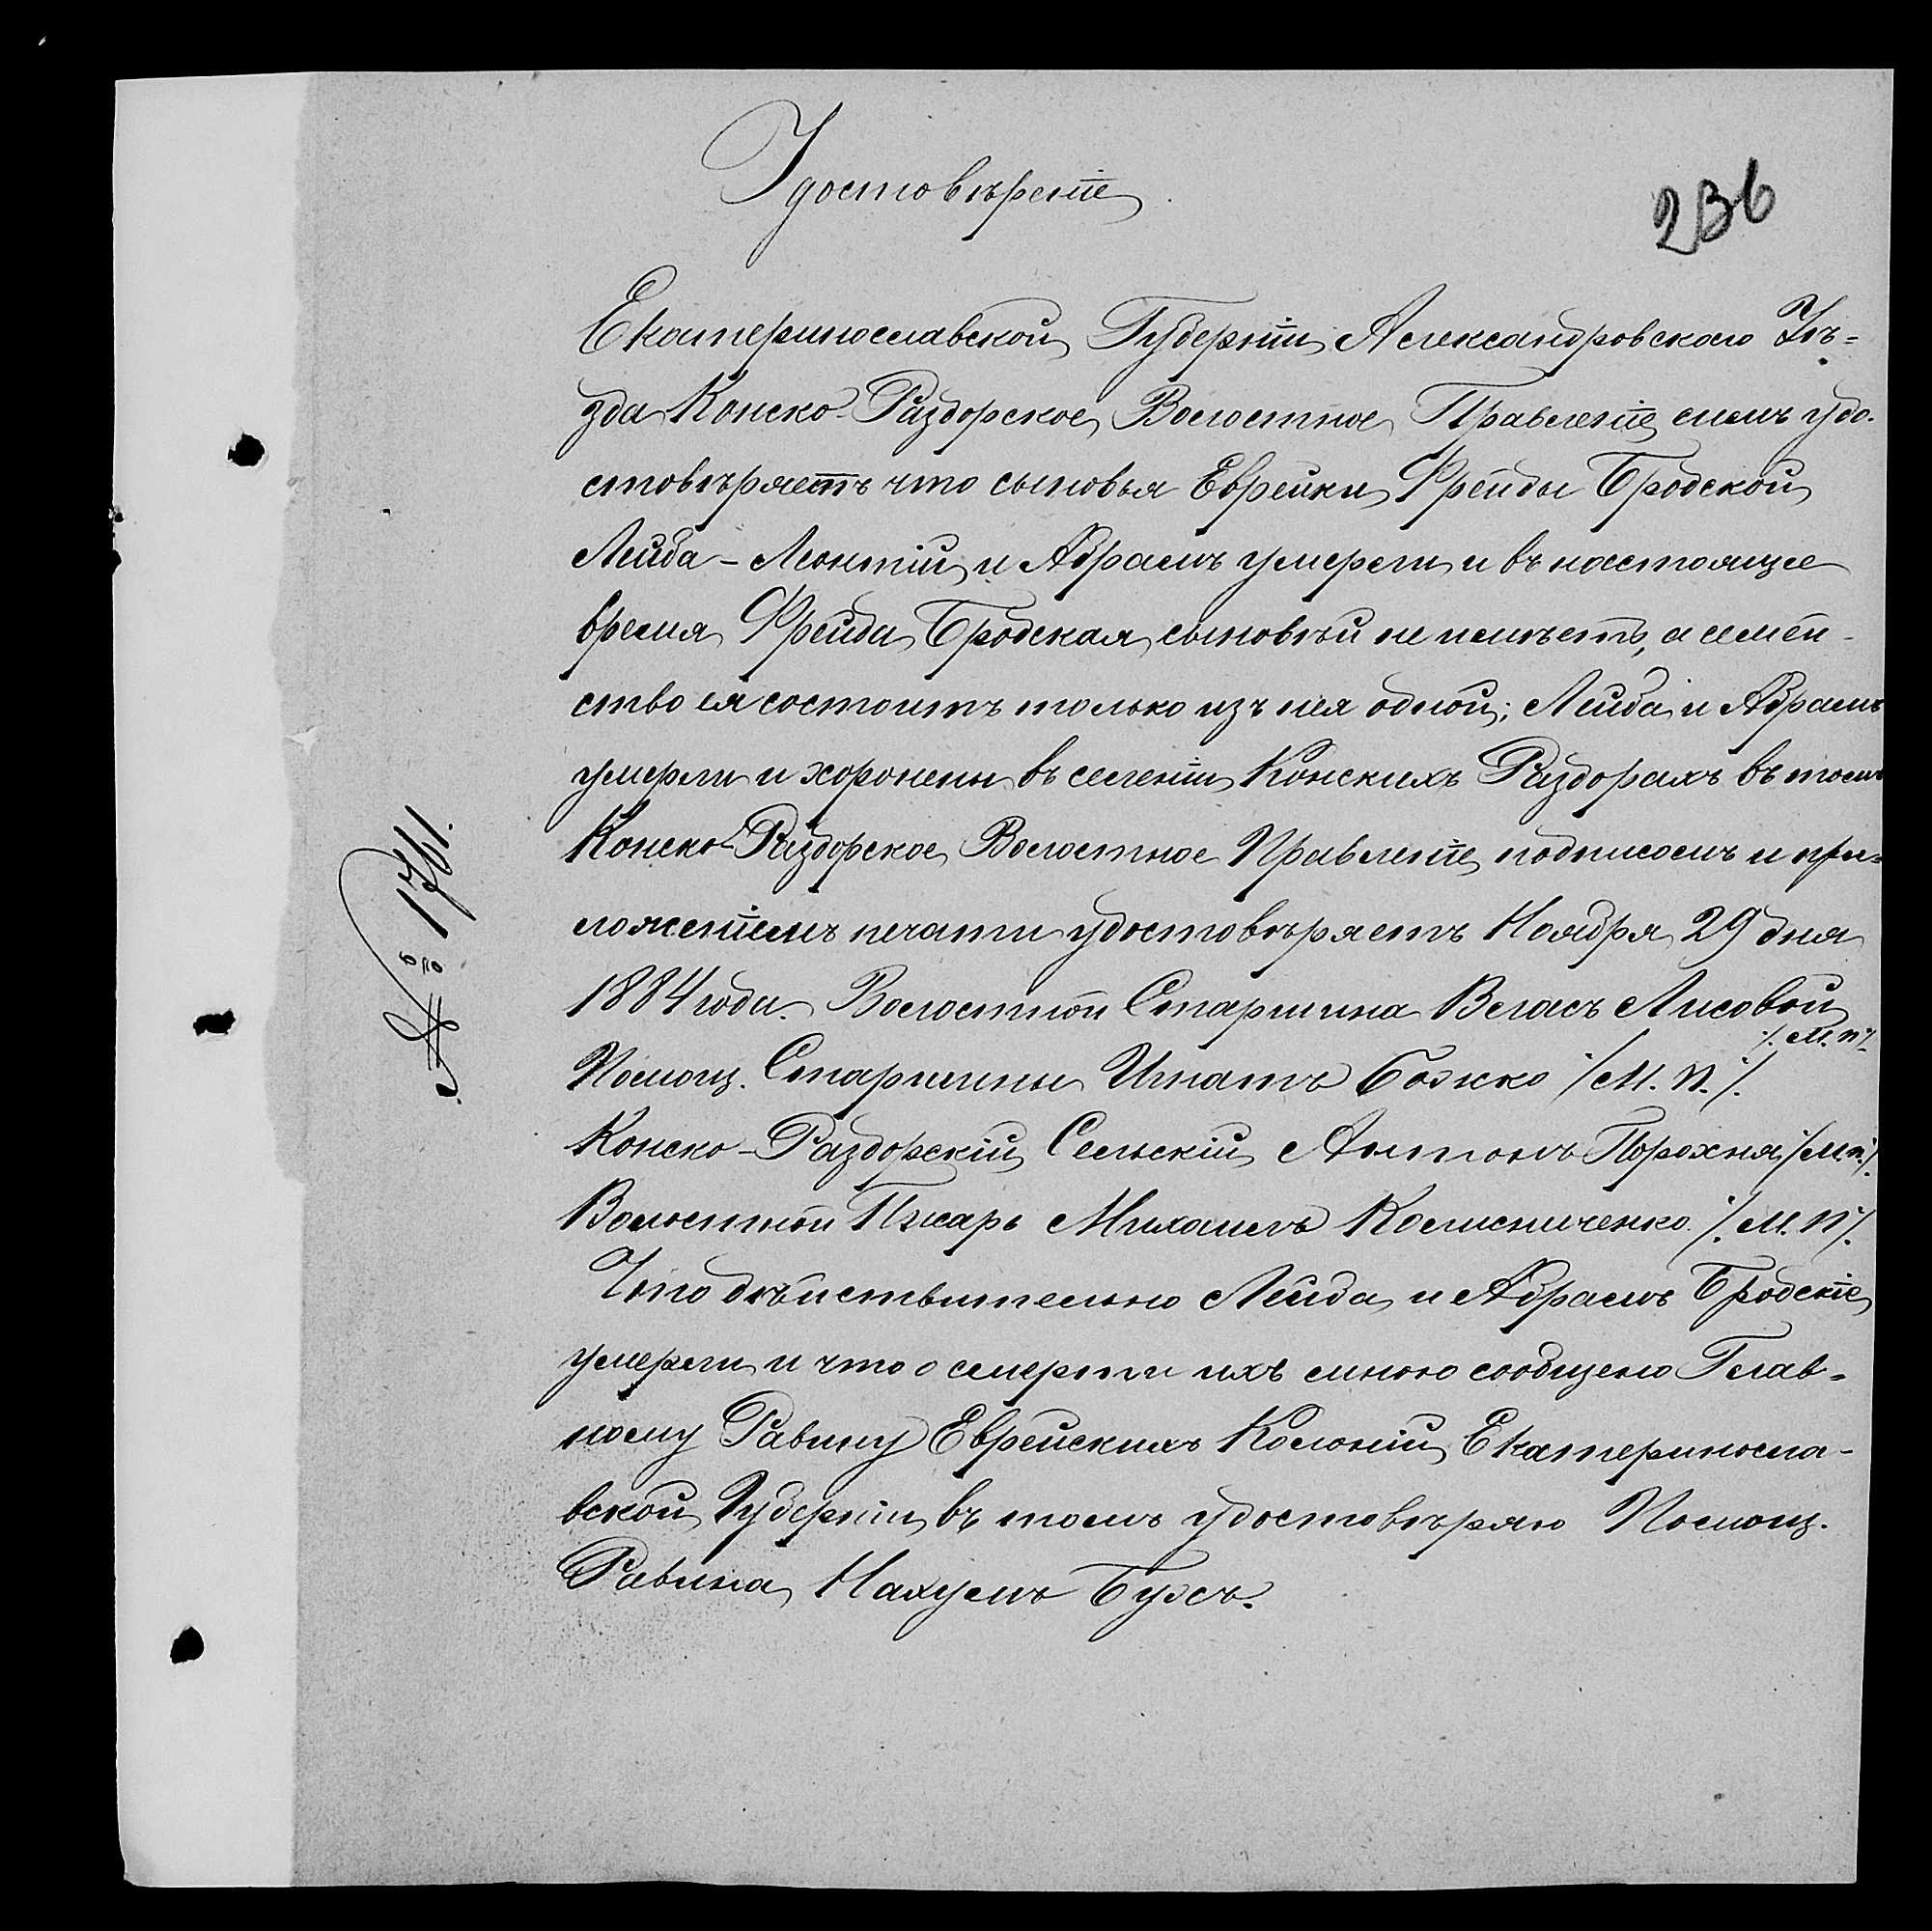 Удостовѣреніе.
236
Екатеринославской Губерніи Александровскаго Уѣ=
зда Конско-Раздорское Волостное Правленіе симъ удо-
стовѣряетъ что сыновья Еврейки Фрейды Бродской
Лейба-Леонтій и Абрамъ умерли и въ настоящее
время Фрейда Бродская сыновѣй не имѣетъ, а семей-
ство ея состоитъ только изъ нея одной; Лейба и Абрамъ
умерли и хоронены въ селеніи Конскихъ Раздорахъ въ томъ
Конско-Раздорское Волостное Правленіе подписомъ и при=
ложеніемъ печати удостовѣряетъ Ноября 29 дня
1884 года. Волостной Старшина Власъ Лисовой
/. М. П./.
Помощ. Старшины Игнатъ Божко /М. П./.
Конско-Раздорскій Сельскій Антонъ Порохня /М.п./.
Волостной Писарь Михаилъ Колисниченко /. М. П/.
Что дѣйствительно Лейба и Абрамъ Бродскіе
умерли и что о смерти ихъ мною сообщено Глав=
ному Равину Еврейскихъ Колоній Екатериносла-
вской Губерніи въ томъ удостовѣряю Помощ.
Равина Нахумъ Бухъ.
№ 1761.